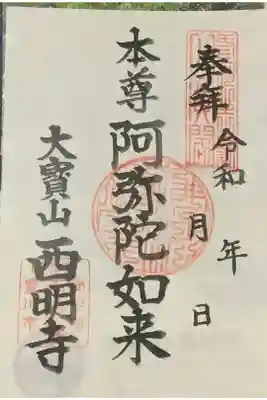 奉拜 令和 年 月 日
本尊 阿弥陀如来
大寳山 西明寺